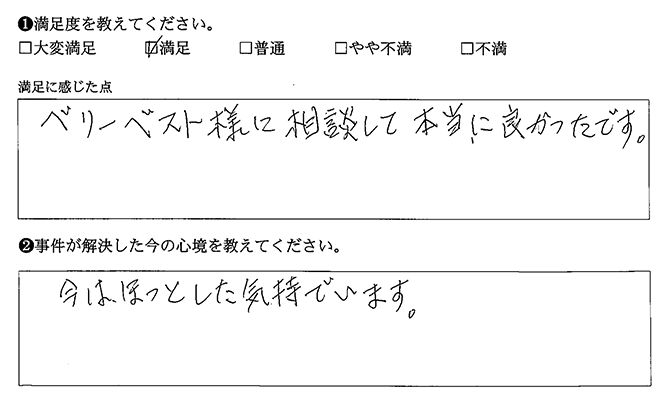 ❶満足度を教えてください。
□大変満足 ☑満足 □普通 □やや不満 □不満
満足に感じた点
ベリーベスト様に相談して本当に良かったです。
❷事件が解決した今の心境を教えてください。
今はほっとした気持でいます。